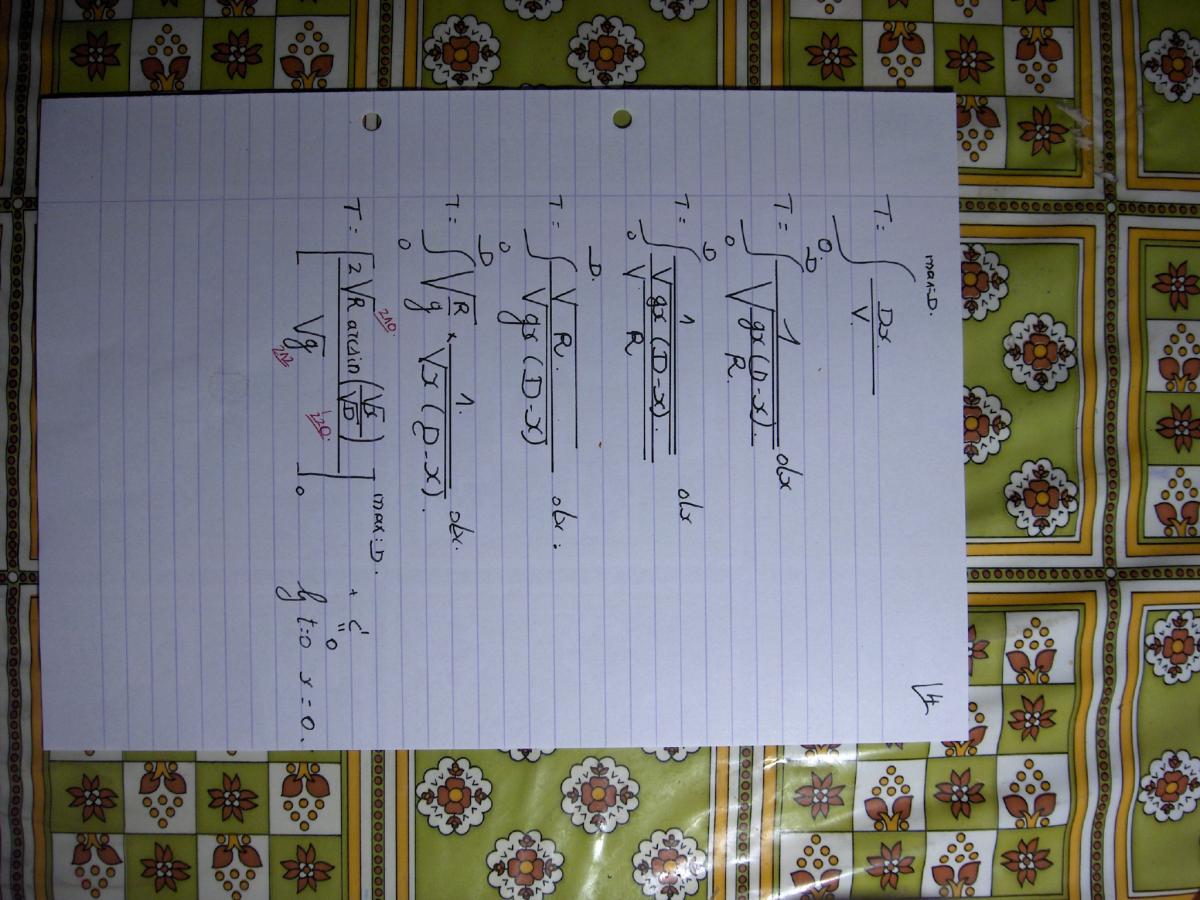 4
max: D.
T = ∫₀ Dx / V.
T = ∫₀^D 1 / √(gx(D-x) / R.) dx
T = ∫₀^D 1 / (√(gx(D-x)) / √R) dx
T = ∫₀^D √R. / √(gx(D-x)) dx:
T = ∫₀^D √(R/g) × 1. / √(x(D-x)). dx.
T = [2√R arcsin(√x / √D) / √g]₀ max: D. + C = 0
If t=0 x=0.